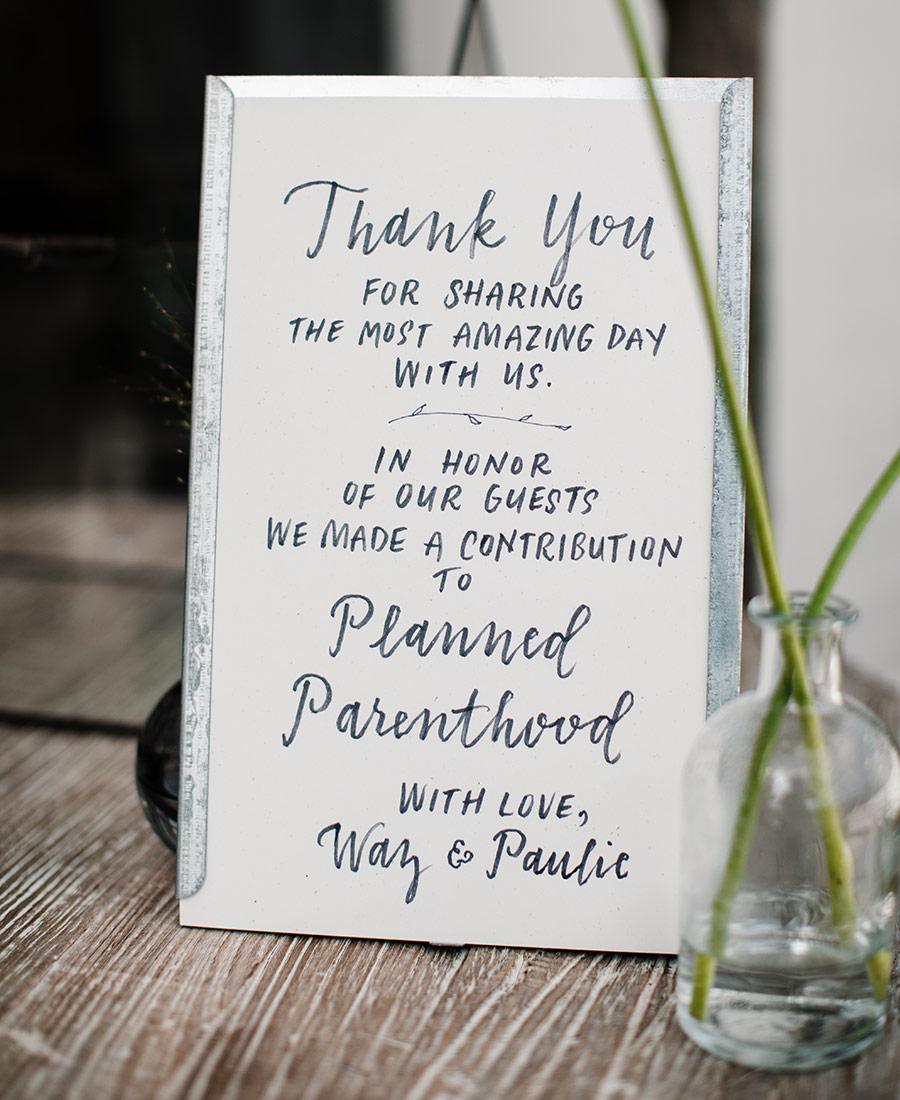 Thank You
FOR SHARING
THE MOST AMAZING DAY
WITH US.
IN HONOR
OF OUR GUESTS
WE MADE A CONTRIBUTION
TO
Planned
Parenthood
WITH LOVE,
Way & Paulie